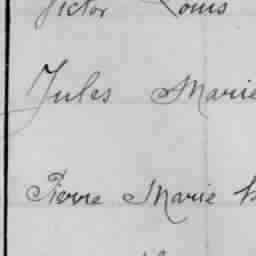 Victor Louis
Jules Marie
Pierre Marie